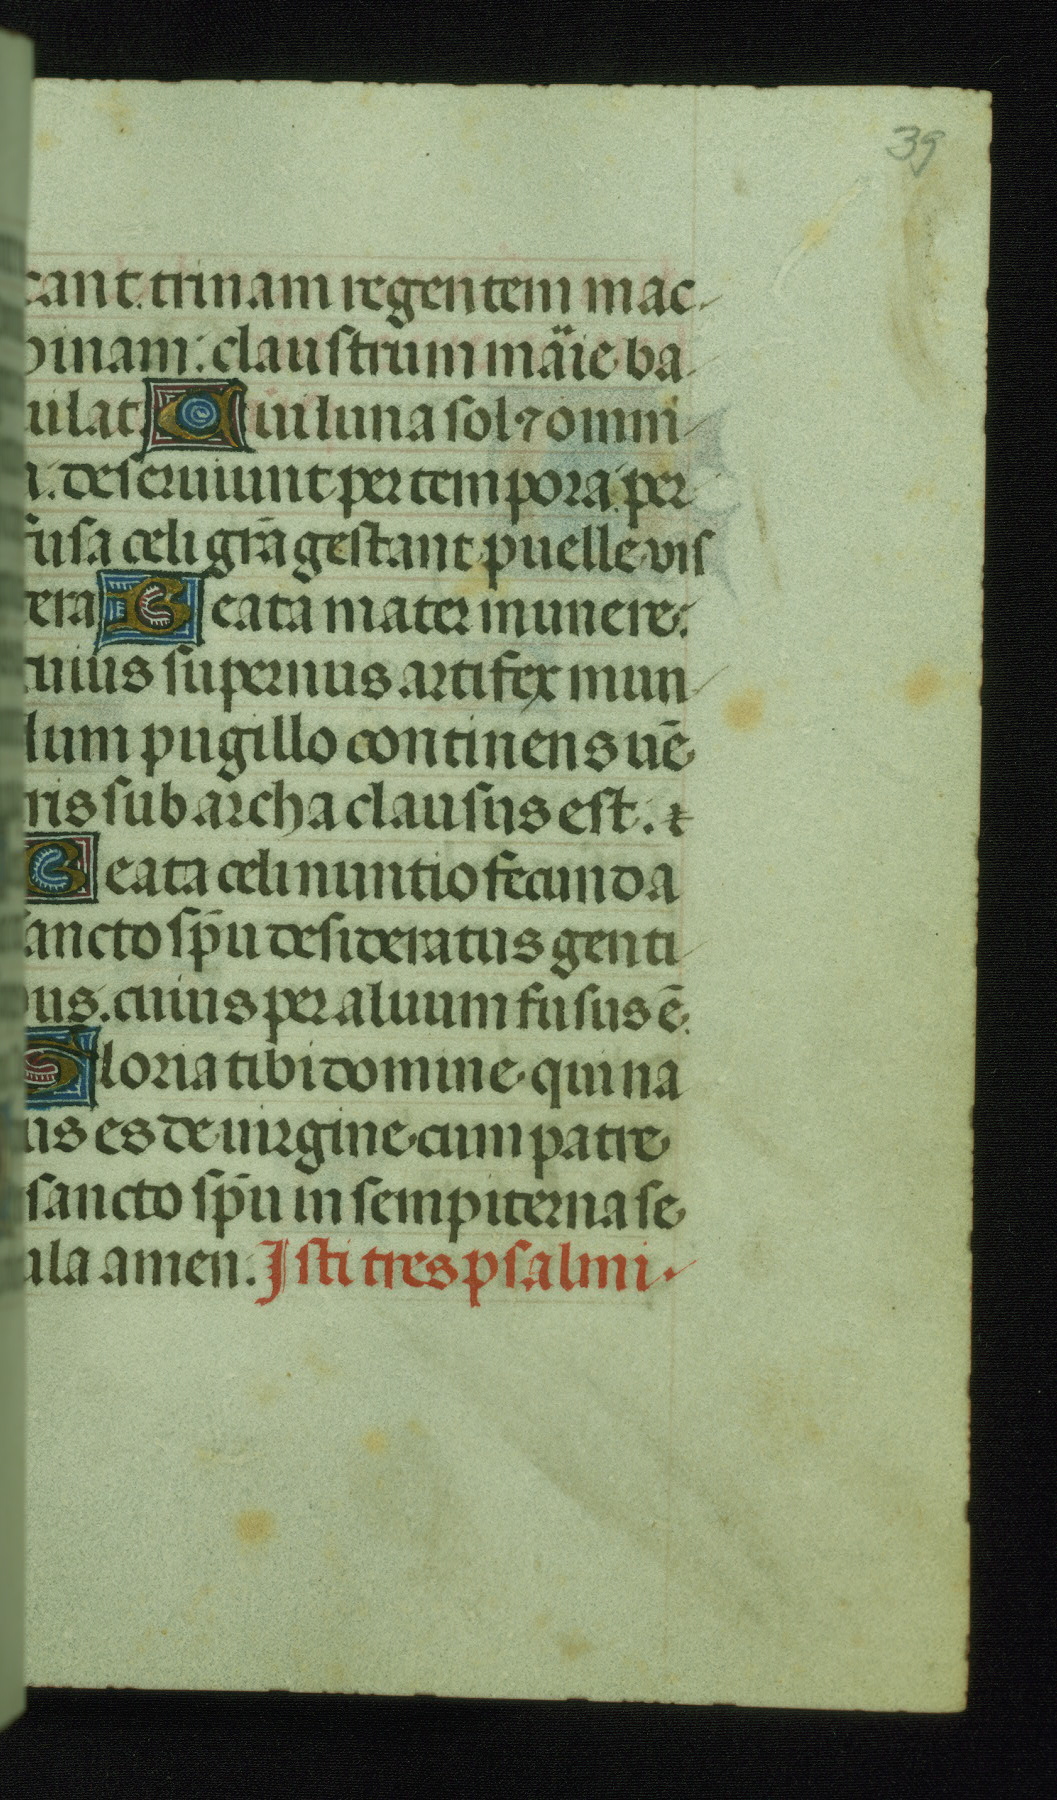 39
cant. trinam regentem mac
hinam: claustrum mäie ba
iulat Cui luna sol ⁊ omni
a. deseruiunt per tempora: per
fusa celi grā gestant puelle vis
cera Beata mater munere:
cuius supernus artifex mun
dum pugillo continens uē
tris sub archa clausus est. ꝶ
Beata celi nuntio fecunda
sancto sp̄u desideratus genti
bus. cuius per aluum fusus ē.
Gloria tibi domine qui na
tus es de uirgine cum patre
sancto sp̄u in sempiterna se
cula amen. Isti tres psalmi.